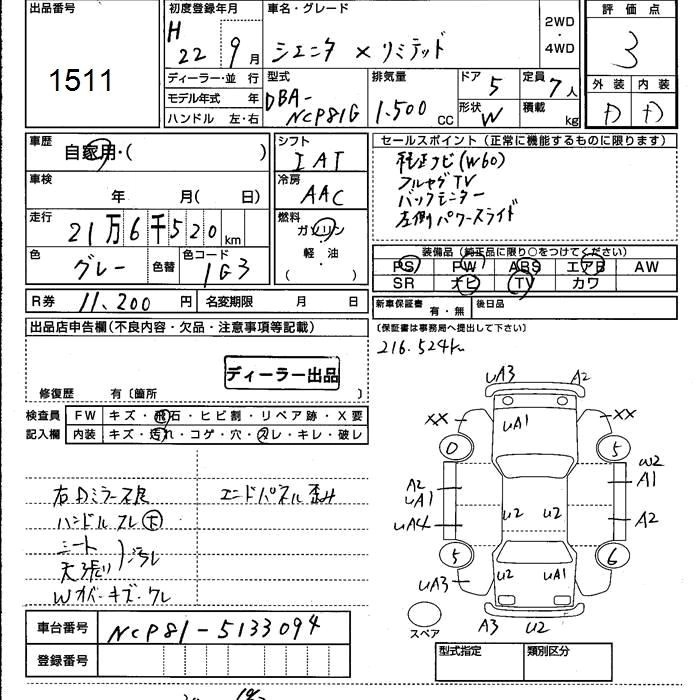 出品番号
1511
初度登録年月
H
22 9月
車名・グレード
シエンタ × リミテッド
2WD
・
4WD
評価点
3
外装 内装
D D
ディーラー・並 行
モデル年式 年
ハンドル 左・右
型式
DBA-
NCP81G
排気量
1.500 cc
ドア 5
形状 W
定員 7人
積載 kg
車歴
自家用・( )
車検
年 月( 日)
走行
21万6千520km
色
グレー
色替
色コード
1G3
シフト
IAT
冷房
AAC
燃料
ガソリン
・
軽・油
( )
セールスポイント(正常に機能するものに限ります)
純正ナビ(W60)
フルセグTV
バックモニター
左側パワースライド
装備品(純正品に限り○をつけてください)
PS PW ABS エアB AW
SR ナビ TV カワ
R券 11,200 円
名変期限 月 日
新車保証書
有・無
後日品
(保証書は事務局へ提出して下さい)
216.524km
出品店申告欄(不良内容・欠品・注意事項等記載)
ディーラー出品
修復歴 有〔箇所 〕
検査員
記入欄
FW キズ・飛石・ヒビ割・リペア跡・X要
内装 キズ・汚れ・コゲ・穴・スレ・キレ・破レ
右Dミラー不良
ハンドルスレ
シート
天張り
Wカバーキズ・ワレ
エンドパネル歪み
UA3 A2
UA1
XX XX
0 5
A2
UA1
UA4
W2
A1
A2
U2 U2
5 6
UA3
U2 UA1
A3 U2
スペア
車台番号 NCP81-5133094
登録番号
型式指定 類別区分